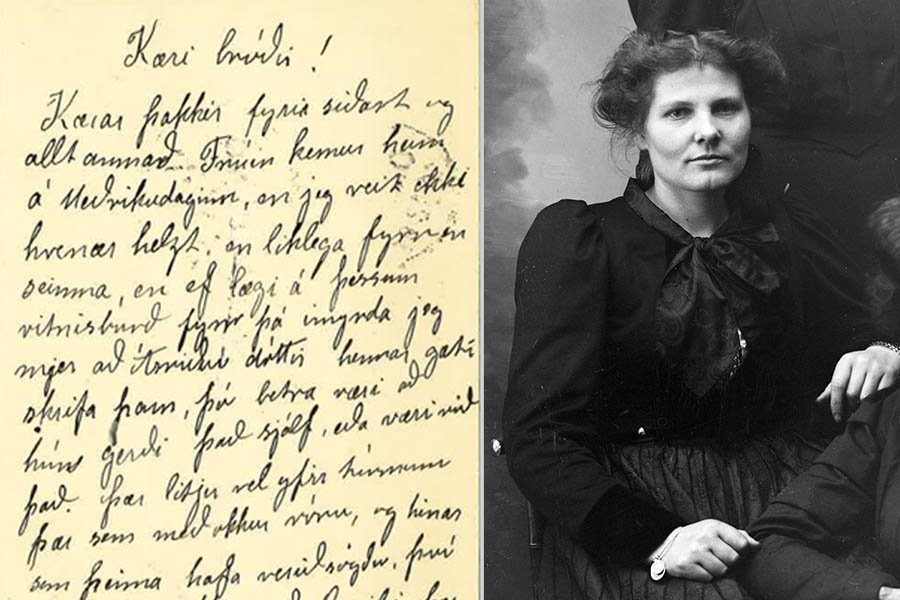 Kæri bróðir!
Kærar þakkir fyrir síðast og
allt annað. Frúin kemur heim
á Miðvikudaginn, en jeg veit ekki
hvenær helzt, en líklega fyrr en
seinna, en ef lægi á þessum
vitnisburð fyrir þá ímynda jeg
mjer að dóttir hennar gæti
skrifa hann, þó betra væri að
hún gerði það sjálf, eða væri við
það. Þær litu vel yfir
þær sem með okkur vóru, og hinar
sem heima hafa verið því